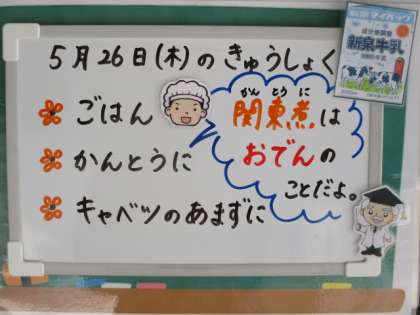 5月26日(木)のきゅうしょく
ごはん
かんとうに
キャベツのあまずに
かん とう に
関東煮は
おでんの
ことだよ。
新泉牛乳